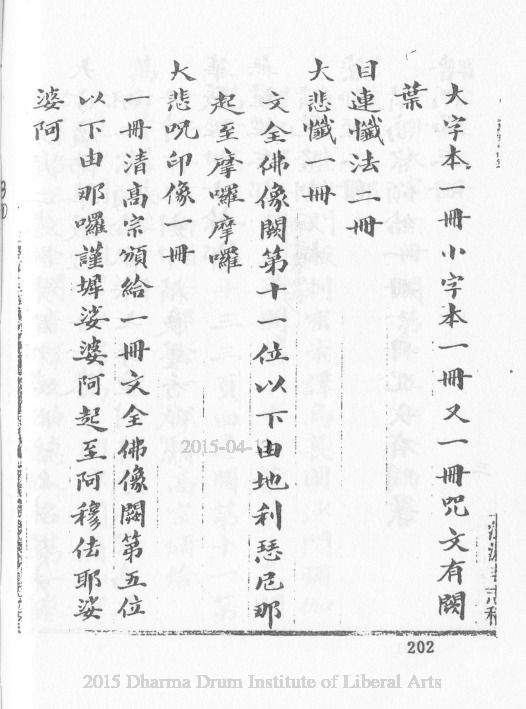 大字本一冊小字本一冊又一冊咒文有闕
葉
目連懺法二冊
大悲懺一冊
文全佛像闕第十 位以下由地利瑟尼那
起至摩囉摩囉
大悲咒印像一冊
一冊清高宗頒給一冊文全佛像闕第五位
以下由那囉謹墀娑婆阿起至阿穆佉耶娑
婆阿
2015-04-13
202
2015 Dharma Drum Institute of Liberal Arts